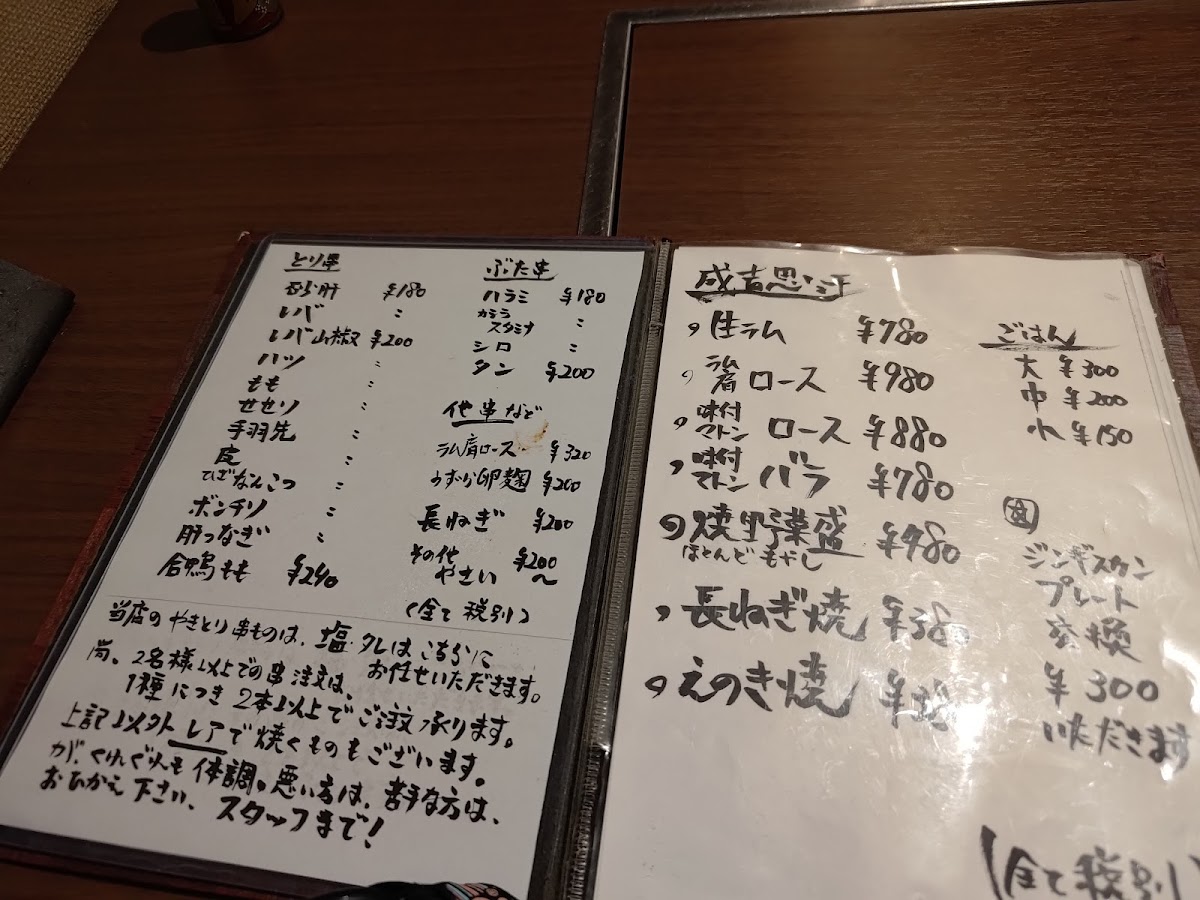 とり串
砂肝 ¥180
レバ 〃
レバ山椒 ¥200
ハツ 〃
もも 〃
せせり 〃
手羽先 〃
皮 〃
ひざなんこつ 〃
ボンチリ 〃
肝つなぎ 〃
合鴨もも ¥240
ぶた串
ハラミ ¥180
カシラ
スタミナ 〃
シロ 〃
タン ¥200
他串など
ラム肩ロース ¥320
うずら卵麹 ¥200
長ねぎ ¥200
その他
やさい ¥200〜
(全て税別)
当店のやきとり串ものは、塩・タレはこちらに
お任せいただきます。
尚、2名様以上での串注文は、
1種につき2本以上でご注文承ります。
上記以外レアで焼くものもございます。
が、くれぐれも体調の悪い方は、苦手な方は、
おひかえ下さい、スタッフまで!
成吉思汗
生ラム ¥780
ラム肩ロース ¥980
味付マトンロース ¥880
味付マトンバラ ¥780
焼野菜盛 ¥480
ほとんどもやし
長ねぎ焼 ¥380
えのき焼
ごはん
大 ¥300
中 ¥200
小 ¥150
ジンギスカン
プレート
交換
¥300
いただきます
(全て税別)